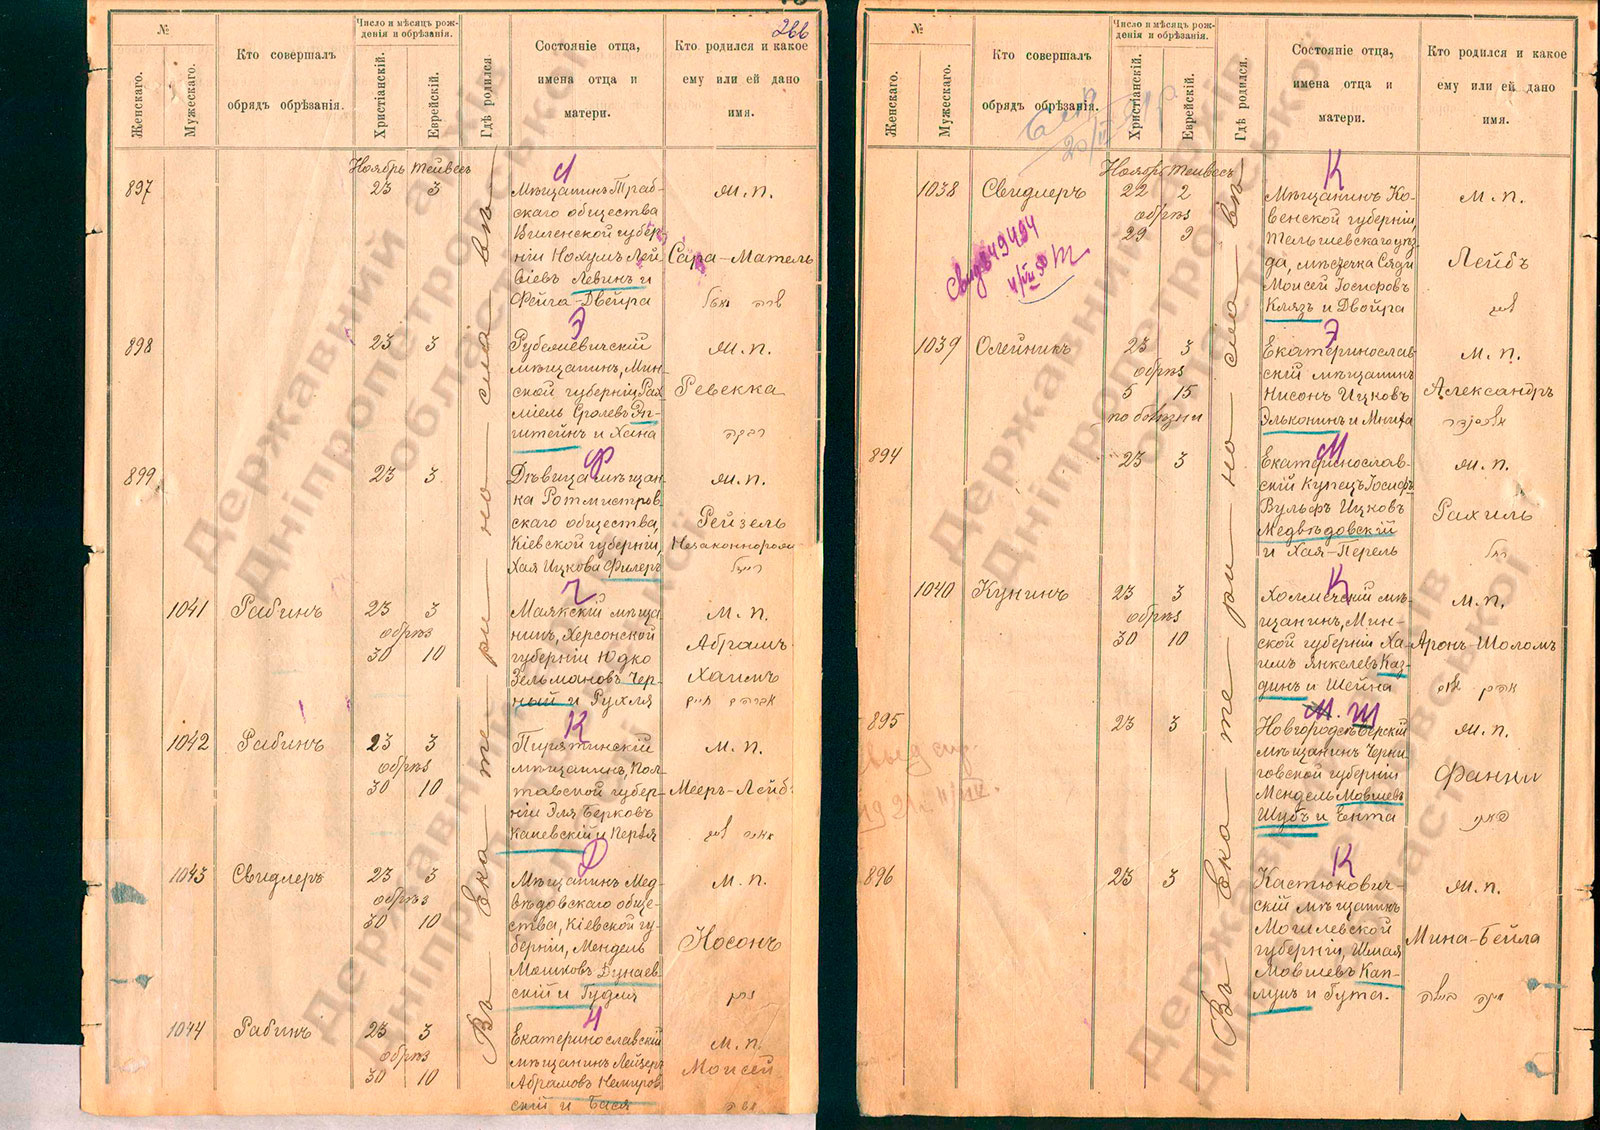 266
№
Женскаго.
Мужескаго.
Кто совершалъ
обрядъ обрѣзанія.
Число и мѣсяцъ рож-
денія и обрѣзанія.
Христіанскій.
Еврейскій.
Гдѣ родился
Состояніе отца,
имена отца и
матери.
Кто родился и какое
ему или ей дано
имя.
Ноябрь Тейвесъ
Въ Екатеринославѣ
897
23 3
Мѣщанинъ Траб-
скаго общества
Виленской губер-
ніи Нохумъ Лей-
Левинъ и
Фейга-Двейра
ж.п.
Сара-Матель
898
23 3
мѣщанинъ, Мин-
ской губерніи
штейнъ и Хана
ж.п.
Ревекка
רבקה
899
23 3
Дѣвица мѣщан-
ка Ротмистров-
скаго общества,
Кіевской губерніи,
Хая Ицкова Филеръ
ж.п.
Рейзель
1041 Рабинъ
23 3
обрѣз
30 10
Ч
Маякскій мѣща-
нинъ, Херсонской
губерніи Юдко
Зельмановъ Чер-
ный и Рухля
м.п.
Абрамъ-
Хаимъ
1042 Рабинъ
23 3
обрѣз
30 10
К
Пирятинскій
мѣщанинъ, Пол-
тавской губер-
ніи Эля Берковъ
Каневскій и Перля
м.п.
Мееръ-Лейбъ
1043 Свидлеръ
23 3
обрѣз
30 10
Д
Мѣщанинъ Мед-
вѣдовскаго обще-
ства, Кіевской гу-
берніи, Мендель
Мошковъ Дунаев-
скій и Гудля
м.п.
Носонъ
1044 Рабинъ
23 3
обрѣз
30 10
Н
Екатеринославскій
мѣщанинъ Лейзеръ
Абрамовъ Немиров-
скій и Бася
м.п.
Моисей
משה
№
Женскаго.
Мужескаго.
Кто совершалъ
обрядъ обрѣзанія.
Число и мѣсяцъ рож-
денія и обрѣзанія.
Христіанскій.
Еврейскій.
Гдѣ родился.
Состояніе отца,
имена отца и
матери.
Кто родился и какое
ему или ей дано
имя.
Ноябрь Тейвесъ
Въ Екатеринославѣ
1038 Свидлеръ
22 2
обрѣз
29 9
К
Мѣщанинъ Ко-
венской губерніи,
Тельшевскаго уѣз-
да, мѣстечка Сяди
Моисей Іосифовъ
Клязъ и Двойра
м.п.
Лейбъ
1039 Олейникъ
23 3
обрѣз
5 15
по болѣзни
Э
Екатеринослав-
скій мѣщанинъ
Нисонъ Ицковъ
Эльконинъ и
м.п.
Александръ
894
23 3
М
Екатеринослав-
скій купецъ Іосифъ
Вульфъ Ицковъ
Медвѣдовскій
и Хая-Перель
ж.п.
Рахиль
רחל
1040 Кунинъ
23 3
обрѣз
30 10
К
Холмечскій мѣ-
щанинъ, Мин-
ской губерніи Ха-
имъ Янкелевъ Каз-
динъ и Шейна
м.п.
Аронъ-Шоломъ
895
23 3
М. Ш
Новгородсѣверскій
мѣщанинъ Черни-
говской губерніи
Мендель Мовшевъ
Шубъ и Ента
ж.п.
896
23 3
К
Костюкович-
скій мѣщанинъ
Могилевской
губерніи, Шмая
Мовшевъ Кап-
лунъ и Гута.
ж.п.
Мина-Бейла
Державний архів
Дніпропетровської
області